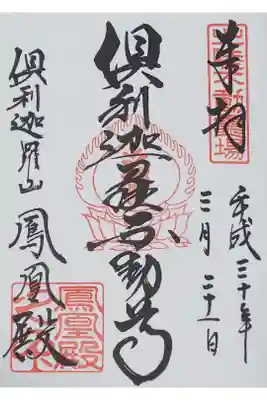 奉拝
平成三十年
三月二十一日
倶利迦羅不動尊
倶利迦羅山 鳳凰殿